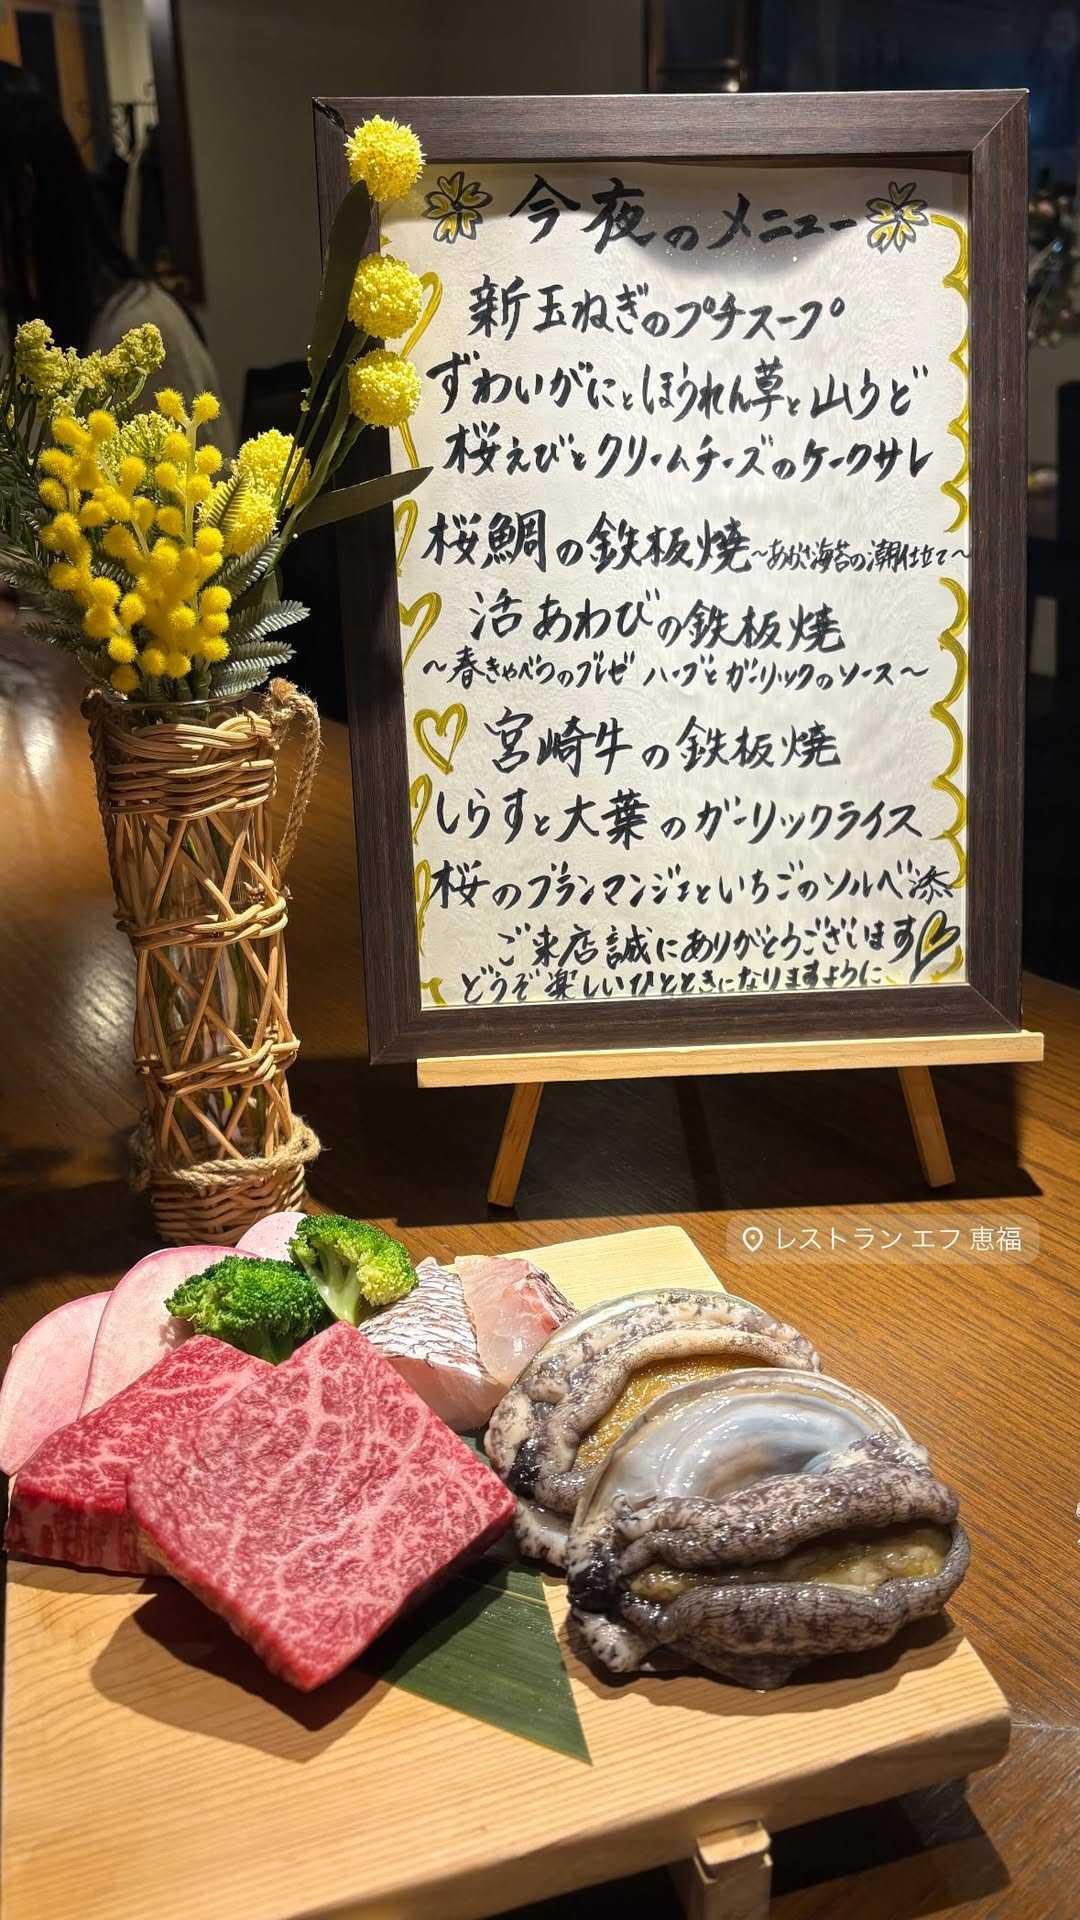 今夜のメニュー
新玉ねぎのプチスープ
ずわいがにとほうれん草と山うど
桜えびとクリームチーズのケークサレ
桜鯛の鉄板焼~あおさ海苔の潮仕立て~
活あわびの鉄板焼
~春きゃべつのブレゼ ハーブとガーリックのソース~
宮崎牛の鉄板焼
しらすと大葉のガーリックライス
桜のブランマンジェといちごのソルベ添
ご来店誠にありがとうございます
どうぞ楽しいひとときになりますように
レストラン エフ 恵福